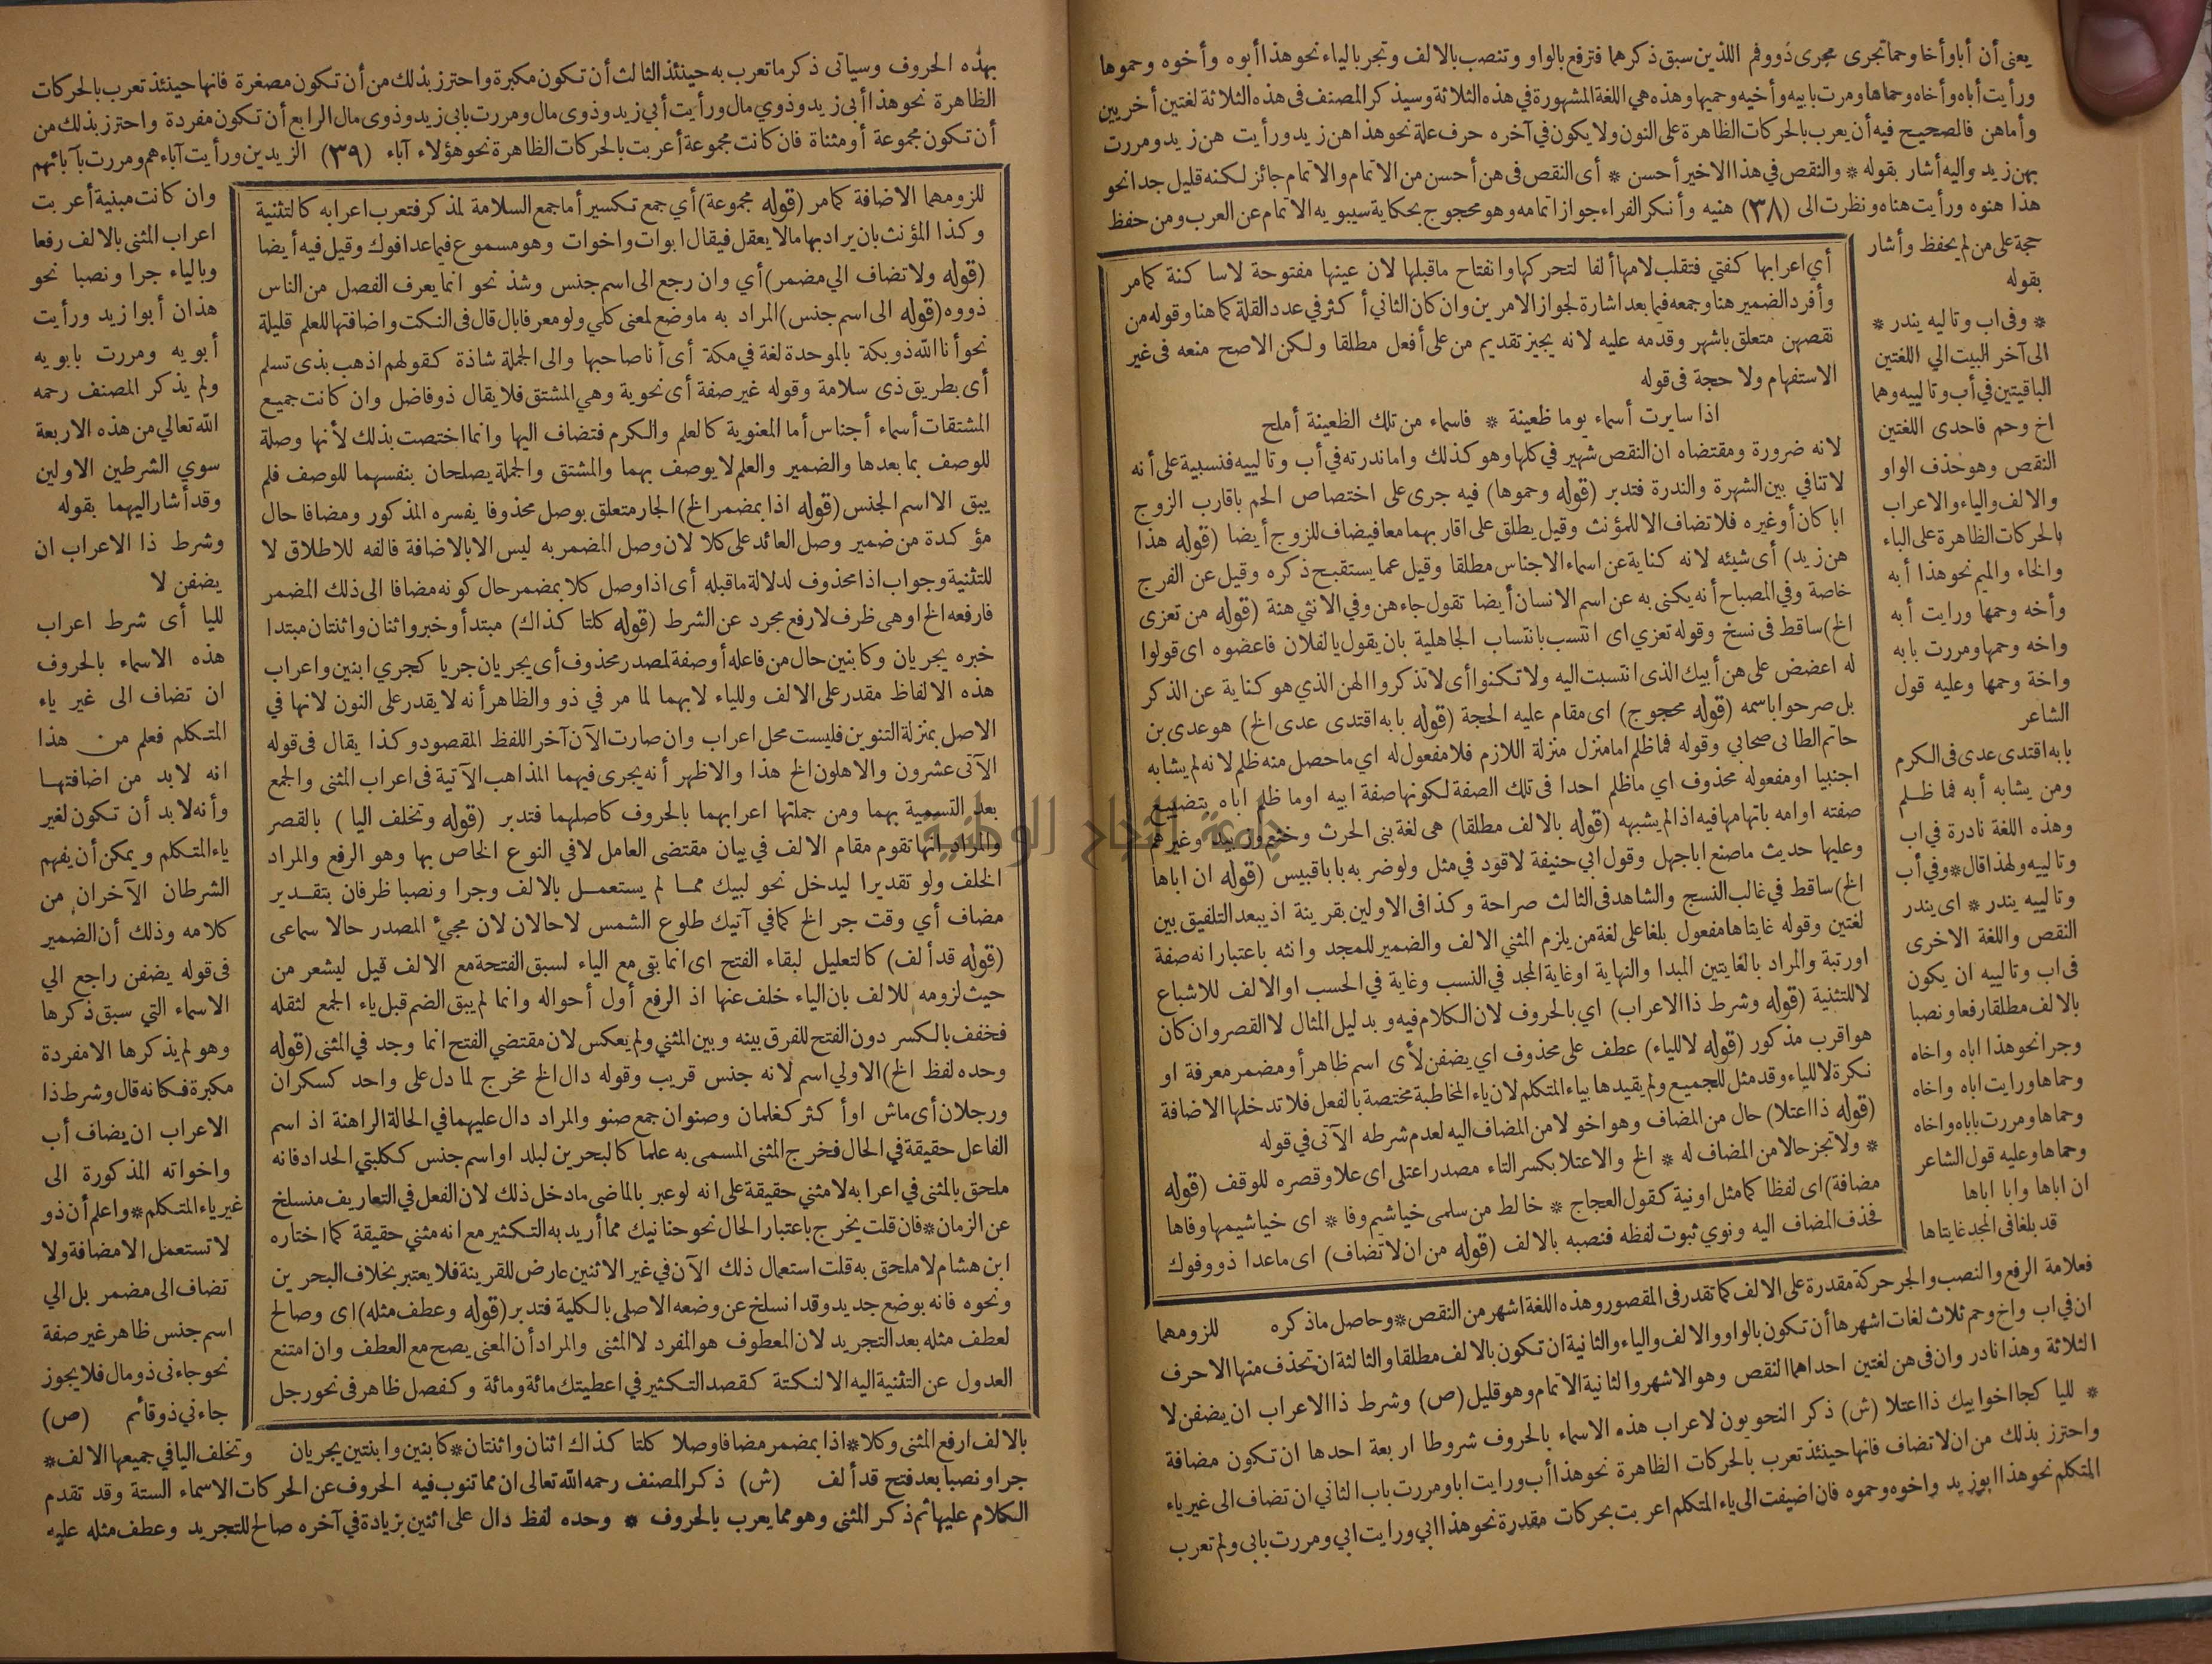 يعنى أن أبا وأخا وحما تجرى مجرى ذو وفم اللذين سبق ذكرهما فترفع بالواو وتنصب بالالف وتجر بالياء نحو هذا أبوه وأخوه وحموها
ورأيت أباه وأخاه وحماها ومرت بابيه وأخيه وحميها وهذه هي اللغة المشهورة في هذه الثلاثة وسيذكر المصنف فى هذه الثلاثة لغتين أخريين
وأما هن فالصحيح فيه أن يعرب بالحركات الظاهرة على النون ولا يكون في آخره حرف علة نحو هذا هن زيد ورأيت هن زيد ومررت
بهن زيد واليه أشار بقوله * والنقص في هذا الاخير أحسن * أى النقص فى هن أحسن من الاتمام والاتمام جائز لكنه قليل جدا نحو
هذا هنوه ورأيت هناه ونظرت الى (٣٨) هنيه وأنكر الفراء جواز اتمامه وهو محجوج بحكاية سيبويه الاتمام عن العرب ومن حفظ
حجة على من لم يحفظ وأشار
بقوله
* وفى اب وتاليه يندر *
الى آخر البيت الي اللغتين
الباقيتين في أب وتالييه وهما
اخ وحم فاحدى اللغتين
النقص وهو حذف الواو
والالف والياء والاعراب
بالحركات الظاهرة على الباء
والخاء والميم نحو هذا أبه
وأخه وحمها ورايت أبه
واخه وحمها ومررت بابه
واخة وحمها وعليه قول
الشاعر
بابه اقتدى عدى فى الكرم
ومن يشابه أبه فما ظلم
وهذه اللغة نادرة في اب
وتالييه ولهذا قال * وفي أب
وتالييه يندر * اى يندر
النقص واللغة الاخرى
فى اب وتالييه ان يكون
بالالف مطلقا رفعا ونصبا
وجرا نحو هذا اباه واخاه
وحماها ورايت اباه واخاه
وحماها ومررت باباه واخاه
وحماها وعليه قول الشاعر
ان اباها وابا اباها
قد بلغا فى المجد غايتاها
أي اعرابها كفتي فتقلب لامها ألفا لتحركها وانفتاح ماقبلها لان عينها مفتوحة لاساكنة كما مر
وأفرد الضمير هنا وجمعه فيما بعد اشارة لجواز الامرين وان كان الثاني أكثر في عدد القلة كما هنا وقوله من
نقصهن متعلق باشهر وقدمه عليه لانه يجيز تقديم من على أفعل مطلقا ولكن الاصح منعه فى غير
الاستفهام ولا حجة فى قوله
اذا سايرت أسماء يوما ظعينة * فاسماء من تلك الظعينة أملح
لانه ضرورة ومقتضاه ان النقص شهير في كلها وهو كذلك واما ندرته في أب وتالييه فنسبية على أنه
لا تنافي بين الشهرة والندرة فتدبر (قوله وحموها) فيه جرى على اختصاص الحم باقارب الزوج
ابا كان أو غيره فلا تضاف الا للمؤنث وقيل يطلق على اقاربهما معا فيضاف للزوج أيضا (قوله هذا
هن زيد) أى شيئه لانه كناية عن اسماء الاجناس مطلقا وقيل عما يستقبح ذكره وقيل عن الفرج
خاصة وفي المصباح أنه يكنى به عن اسم الانسان أيضا تقول جاء هن وفي الانثي هنة (قوله من تعزى
الخ) ساقط فى نسخ وقوله تعزي اى انتسب بانتساب الجاهلية بان يقول يالفلان فاعضوه اى قولوا
له اعضض على هن أبيك الذى انتسبت اليه ولا تكنوا أى لا تذكروا الهن الذي هو كناية عن الذكر
بل صرحوا باسمه (قوله محجوج) اى مقام عليه الحجة (قوله بابه اقتدى عدى الخ) هو عدى بن
حاتم الطائى صحابي وقوله فما ظلم اما منزل منزلة اللازم فلا مفعول له اي ما حصل منه ظلم لانه لم يشابه
اجنبيا او مفعوله محذوف اي ما ظلم احدا فى تلك الصفة لكونها صفة ابيه او ما ظلم اباه بتضييع
صفته او امه باتهامها فيه اذا لم يشبهه (قوله بالالف مطلقا) هى لغة بنى الحرث وخثعم وزبيد وغيرهم
وعليها حديث ما صنع اباجهل وقول ابي حنيفة لا قود في مثل ولو ضربه بابا قبيس (قوله ان اباها
الخ) ساقط في غالب النسج والشاهد فى الثالث صراحة وكذا فى الاولين بقرينة اذ يبعد التلفيق بين
لغتين وقوله غايتاها مفعول بلغا على لغة من يلزم المثني الالف والضمير للمجد وانثه باعتبار انه صفة
او رتبة والمراد بالغايتين المبدا والنهاية او غاية المجد في النسب وغاية في الحسب او الالف للاشباع
لا للتثنية (قوله وشرط ذا الاعراب) اي بالحروف لان الكلام فيه وبدليل المثال لا القصر وان كان
هو اقرب مذكور (قوله لا للياء) عطف على محذوف اي يضفن لأى اسم ظاهر أو مضمر معرفة او
نكرة لا للياء وقد مثل للجميع ولم يقيدها بياء المتكلم لان ياء المخاطبة مختصة بالفعل فلا تدخلها الاضافة
(قوله ذا اعتلا) حال من المضاف وهو اخو لا من المضاف اليه لعدم شرطه الآتى في قوله
* ولا تجز حالا من المضاف له * الخ والاعتلا بكسر التاء مصدر اعتلى اى علا وقصره للوقف (قوله
مضافة) اى لفظا كما مثل او نية كقول العجاج * خالط من سلمى خياشيم وفا * اى خياشيمها وفاها
فحذف المضاف اليه ونوي ثبوت لفظه فنصبه بالالف (قوله من ان لا تضاف) اى ماعدا ذو وفوك
فعلامة الرفع والنصب والجر حركة مقدرة على الالف كما تقدر فى المقصور وهذه اللغة اشهر من النقص * وحاصل ما ذكره للزومهما
ان في اب واخ وحم ثلاث لغات اشهرها أن تكون بالواو والالف والياء والثانية ان تكون بالالف مطلقا والثالثة ان تحذف منها الاحرف
الثلاثة وهذا نادر وان فى هن لغتين احداهما النقص وهو الاشهر والثانية الاتمام وهو قليل (ص) وشرط ذا الاعراب ان يضفن لا
* لليا كجا اخو ابيك ذا اعتلا (ش) ذكر النحويون لاعراب هذه الاسماء بالحروف شروطا اربعة احدها ان تكون مضافة
واحترز بذلك من ان لا تضاف فانها حينئذ تعرب بالحركات الظاهرة نحو هذا أب ورايت ابا ومررت باب الثاني ان تضاف الى غير ياء
المتكلم نحو هذا ابو زيد واخوه وحموه فان اضيفت الى ياء المتكلم اعربت بحركات مقدرة نحو هذا ابي ورايت ابي ومررت بابى ولم تعرب
بهذه الحروف وسياتى ذكر ما تعرب به حينئذ الثالث أن تكون مكبرة واحترز بذلك من أن تكون مصغرة فانها حينئذ تعرب بالحركات
الظاهرة نحو هذا أبى زيد وذوي مال ورأيت أبي زيد وذوى مال ومررت بابى زيد وذوى مال الرابع أن تكون مفردة واحترز بذلك من
أن تكون مجموعة أو مثناة فان كانت مجموعة أعربت بالحركات الظاهرة نحو هؤلاء آباء (٣٩) الزيدين ورأيت آباءهم ومررت بآبائهم
للزومهما الاضافة كما مر (قوله مجموعة) أي جمع تكسير أما جمع السلامة لمذكر فتعرب اعرابه كالتثنية
وكذا المؤنث بان يراد بها مالا يعقل فيقال ابوات واخوات وهو مسموع فيما عدا فوك وقيل فيه أيضا
(قوله ولا تضاف الي مضمر) أي وان رجع الى اسم جنس وشذ نحو انما يعرف الفصل من الناس
ذووه (قوله الى اسم جنس) المراد به ما وضع لمعنى كلي ولو معرفا بال قال فى النكت واضافتها للعلم قليلة
نحو أنا الله ذو بكة بالموحدة لغة في مكة أى أنا صاحبها والى الجملة شاذة كقولهم اذهب بذى تسلم
أى بطريق ذى سلامة وقوله غير صفة أى نحوية وهي المشتق فلا يقال ذو فاضل وان كانت جميع
المشتقات أسماء أجناس أما المعنوية كالعلم والكرم فتضاف اليها وانما اختصت بذلك لأنها وصلة
للوصف بما بعدها والضمير والعلم لا يوصف بهما والمشتق والجملة يصلحان بنفسهما للوصف فلم
يبق الا اسم الجنس (قوله اذا بمضمر الخ) الجار متعلق بوصل محذوفا يفسره المذكور ومضافا حال
مؤكدة من ضمير وصل العائد على كلا لان وصل المضمر به ليس الا بالاضافة فالفه للاطلاق لا
للتثنية وجواب اذا محذوف لدلالة ما قبله أى اذا وصل كلا بمضمر حال كونه مضافا الى ذلك المضمر
فارفعه الخ او هى ظرف لارفع مجرد عن الشرط (قوله كلتا كذاك) مبتدأ وخبر واثنان واثنتان مبتدا
خبره يجريان وكابنين حال من فاعله أو صفة لمصدر محذوف أى يجريان جريا كجري ابنين واعراب
هذه الالفاظ مقدر على الالف ولليا‌ء لابهما لما مر في ذو والظاهر أنه لا يقدر على النون لانها في
الاصل بمنزلة التنوين فليست محل اعراب وان صارت الآن آخر اللفظ المقصود وكذا يقال فى قوله
الآتى عشرون والاهلون الخ هذا والاظهر أنه يجرى فيهما المذاهب الآتية فى اعراب المثنى والجمع
بعد التسمية بهما ومن جملتها اعرابهما بالحروف كاصلهما فتدبر (قوله وتخلف اليا) بالقصر
والمراد انها تقوم مقام الالف في بيان مقتضى العامل لا في النوع الخاص بها وهو الرفع والمراد
الخلف ولو تقديرا ليدخل نحو لبيك مما لم يستعمل بالالف وجرا ونصبا ظرفان بتقدير
مضاف أي وقت جر الخ كما في آتيك طلوع الشمس لا حالان لان مجيئ المصدر حالا سماعى
(قوله قد ألف) كالتعليل لبقاء الفتح اى انما بقى مع الياء لسبق الفتحة مع الالف قيل ليشعر من
حيث لزومه للالف بان الياء خلف عنها اذ الرفع أول أحواله وانما لم يبق الضم قبل ياء الجمع لثقله
فخفف بالكسر دون الفتح للفرق بينه وبين المثني ولم يعكس لان مقتضي الفتح انما وجد في المثنى (قوله
وحده لفظ الخ) الاولي اسم لانه جنس قريب وقوله دال الخ مخرج لما دل على واحد كسكران
ورجلان أى ماش او أكثر كغلمان وصنوان جمع صنو والمراد دال عليهما في الحالة الراهنة اذ اسم
الفاعل حقيقة في الحال فخرج المثنى المسمى به علما كالبحرين لبلد او اسم جنس ككلبتي الحداد فانه
ملحق بالمثنى في اعرابه لا مثني حقيقة على انه لو عبر بالماضى ما دخل ذلك لان الفعل في التعاريف منسلخ
عن الزمان * فان قلت يخرج باعتبار الحال نحو حنانيك مما أريد به التكثير مع انه مثني حقيقة كما اختاره
ابن هشام لا ملحق به قلت استعمال ذلك الآن في غير الاثنين عارض للقرينة فلا يعتبر بخلاف البحرين
ونحوه فانه بوضع جديد وقد انسلخ عن وضعه الاصلى بالكلية فتدبر (قوله وعطف مثله) اى وصالح
لعطف مثله بعد التجريد لان المعطوف هو المفرد لا المثنى والمراد أن المعنى يصح مع العطف وان امتنع
العدول عن التثنية اليه الا لنكتة كقصد التكثير في اعطيتك مائة ومائة وكفصل ظاهر فى نحو رجل
وان كانت مبنية أعربت
اعراب المثنى بالالف رفعا
وبالياء جرا ونصبا نحو
هذان أبوا زيد ورأيت
أبويه ومررت بابويه
ولم يذكر المصنف رحمه
الله تعالي من هذه الاربعة
سوي الشرطين الاولين
وقد أشار اليهما بقوله
وشرط ذا الاعراب ان
يضفن لا
لليا أى شرط اعراب
هذه الاسماء بالحروف
ان تضاف الى غير ياء
المتكلم فعلم من هذا
انه لابد من اضافتها
وأنه لا بد أن تكون لغير
ياء المتكلم ويمكن أن يفهم
الشرطان الآخران من
كلامه وذلك أن الضمير
فى قوله يضفن راجع الي
الاسماء التي سبق ذكرها
وهو لم يذكرها الا مفردة
مكبرة فكانه قال وشرط ذا
الاعراب ان يضاف أب
واخواته المذكورة الى
غير ياء المتكلم * واعلم أن ذو
لا تستعمل الا مضافة ولا
تضاف الى مضمر بل الي
اسم جنس ظاهر غير صفة
نحو جاءنى ذو مال فلا يجوز
جاءني ذو قائم (ص)
بالالف ارفع المثنى وكلا * اذا بمضمر مضافا وصلا كلتا كذاك اثنان واثنتان * كابنين وابنتين يجريان وتخلف اليا في جميعها الالف *
جرا ونصبا بعد فتح قد ألف (ش) ذكر المصنف رحمه الله تعالى ان مما تنوب فيه الحروف عن الحركات الاسماء الستة وقد تقدم
الكلام عليها ثم ذكر المثنى وهو مما يعرب بالحروف * وحده لفظ دال على اثنين بزيادة في آخره صالح للتجريد وعطف مثله عليه
جامعة النجاح الوطنية